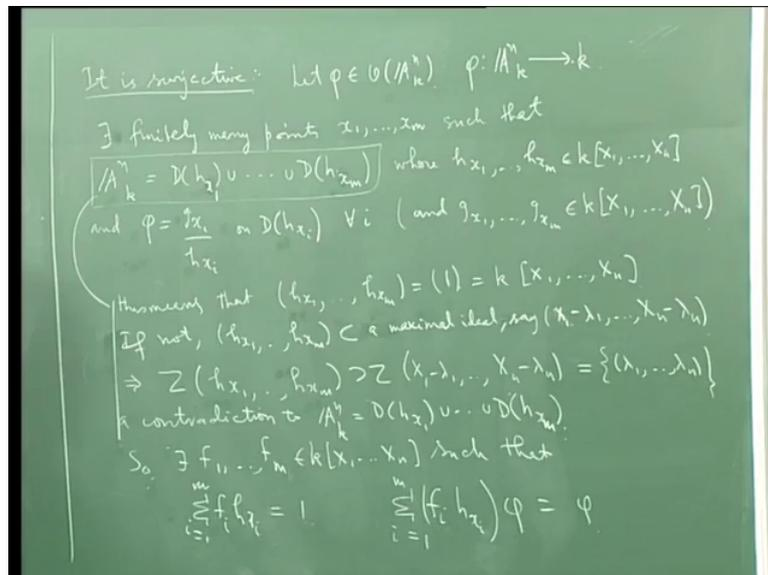 It is surjective: Let φ ∈ O(𝔸ⁿₖ) φ: 𝔸ⁿₖ ⟶ k
∃ finitely many points x₁, ..., xₘ such that
𝔸ⁿₖ = D(h_{x₁}) ∪ ... ∪ D(h_{xₘ}) where h_{x₁}, .., h_{xₘ} ∈ k[X₁, ..., Xₙ]
and φ = g_{xᵢ}/h_{xᵢ} on D(h_{xᵢ}) ∀ i (and g_{x₁}, ..., g_{xₘ} ∈ k[X₁, ..., Xₙ])
this means that (h_{x₁}, .., h_{xₘ}) = (1) = k[X₁, ..., Xₙ]
If not, (h_{x₁}, .., h_{xₘ}) ⊂ a maximal ideal, say (X₁-λ₁, ..., Xₙ-λₙ)
⇒ Z(h_{x₁}, .., h_{xₘ}) ⊃ Z(X₁-λ₁, ..., Xₙ-λₙ) = {(λ₁, .., λₙ)}
a contradiction to 𝔸ⁿₖ = D(h_{x₁}) ∪ .. ∪ D(h_{xₘ}).
So ∃ f₁, .., fₘ ∈ k[X₁ ... Xₙ] such that
∑_{i=1}^{m} fᵢ h_{xᵢ} = 1 ∑_{i=1}^{m} (fᵢ h_{xᵢ}) φ = φ